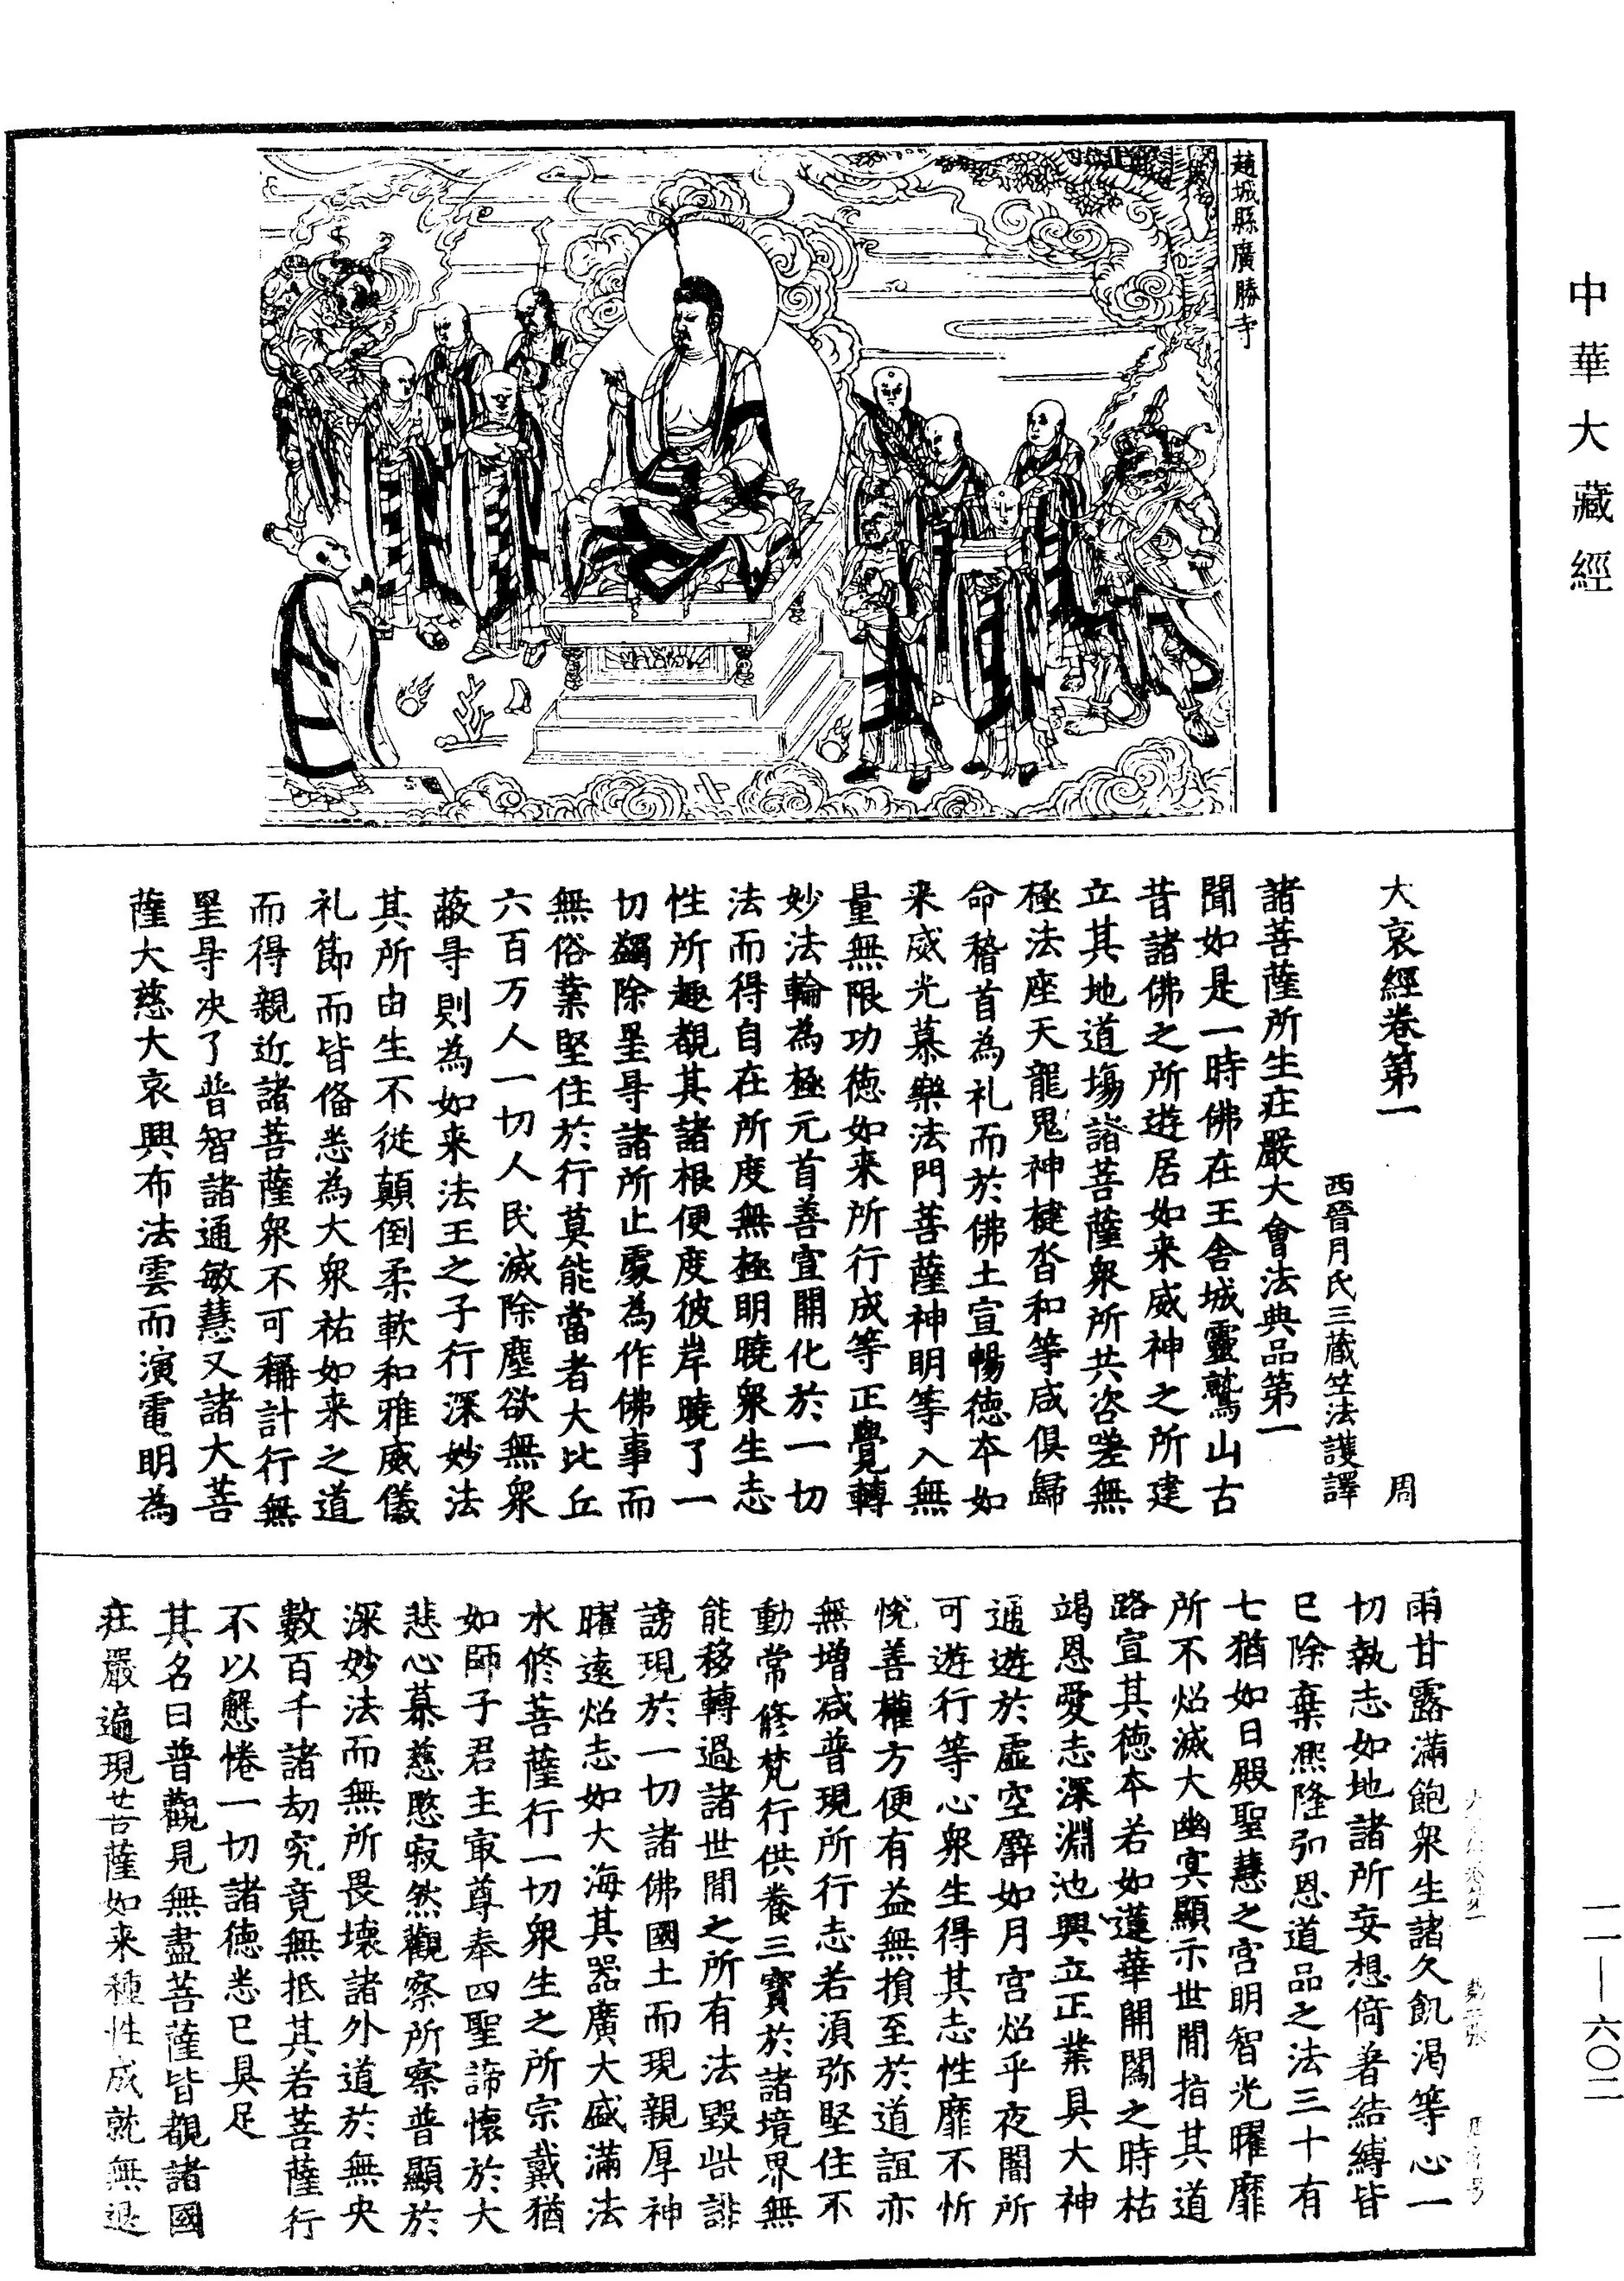 中華大藏經
一一—六〇二
趙城縣廣勝寺
大哀經卷第一　周
西晉月氏三藏竺法護譯
諸菩薩所生莊嚴大會法典品第一
聞如是一時佛在王舍城靈鷲山古
昔諸佛之所遊居如来威神之所建
立其地道塲諸菩薩衆所共咨嗟無
極法座天龍鬼神揵沓和等咸俱歸
命稽首為礼而於佛土宣暢德本如
来威光慕樂法門菩薩神明等入無
量無限功德如来所行成等正覺轉
妙法輪為極元首善宣開化於一切
法而得自在所度無極明曉衆生志
性所趣觀其諸根便度彼岸曉了一
切蠲除罣㝵諸所止處為作佛事而
無俗業堅住於行莫能當者大比丘
六百万人一切人民滅除塵欲無衆
蔽㝵則為如来法王之子行深妙法
其所由生不從顛倒柔軟和雅威儀
礼節而皆俻悉為大衆祐如来之道
而得親近諸菩薩衆不可稱計行無
罣㝵决了普智諸通敏慧又諸大菩
薩大慈大哀興布法雲而演電明為
雨甘露滿飽衆生諸久飢渴等心一
切執志如地諸所妄想倚著結縛皆
已除棄熈隆弘恩道品之法三十有
七猶如日殿聖慧之宫明智光曜靡
所不炤滅大幽冥顯示世間指其道
路宣其德本若如蓮華開闊之時枯
竭恩愛志深淵池興立正業具大神
通遊於虚空辟如月宫炤乎夜闇所
可遊行等心衆生得其志性靡不忻
悅善權方便有益無損至於道誼亦
無增减普現所行志若須弥堅住不
動常修梵行供養三寶於諸境界無
能移轉過諸世間之所有法毀呰誹
謗現於一切諸佛國土而現親厚神
曜遠炤志如大海其器廣大盛滿法
水修菩薩行一切衆生之所宗戴猶
如師子君主㝡尊奉四聖諦懷於大
悲心慕慈愍寂然觀察所察普顯於
深妙法而無所畏壞諸外道於無央
數百千諸劫究竟無抵其若菩薩行
不以懈惓一切諸德悉已具足
其名曰普觀見無盡菩薩皆觀諸國
莊嚴遍現菩薩如来種性成就無退